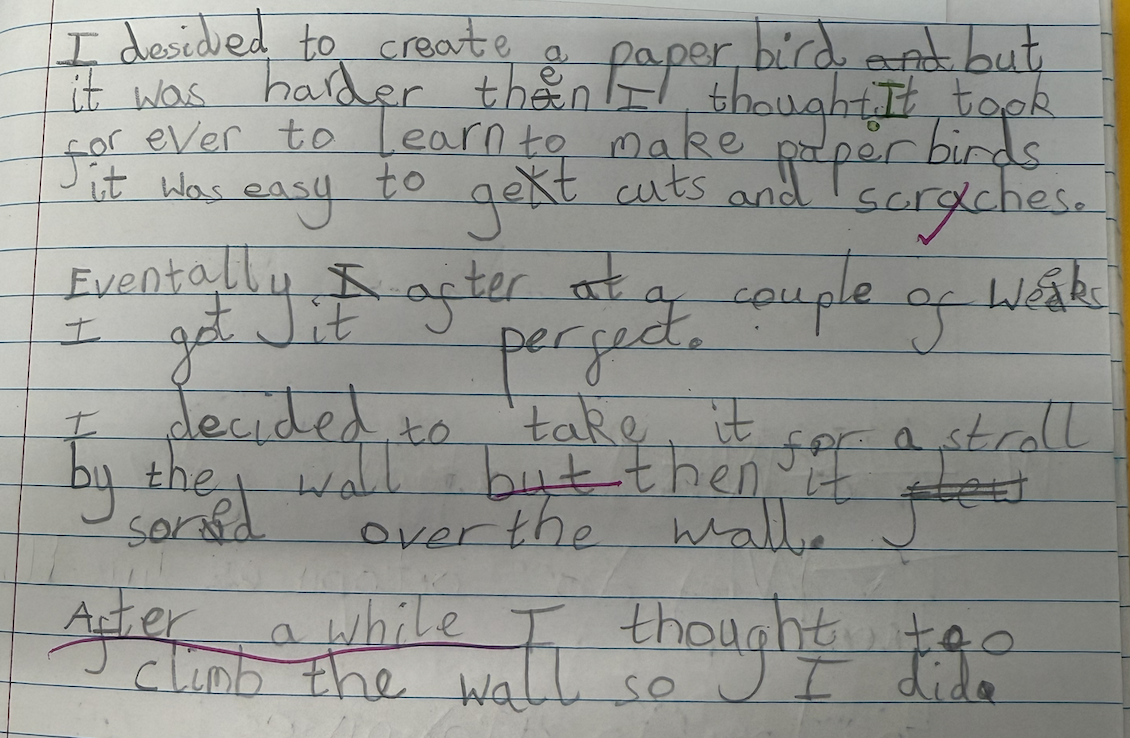 I desided to create a paper bird and but
it was harder then I thought. It took
for ever to learn to make paper birds
it was easy to get cuts and scraches.
Eventally I after at a couple of weeks
I got it perfect.
I decided to take it for a stroll
by the wall but then it
sored over the wall.
After a while I thought too
climb the wall so I did.